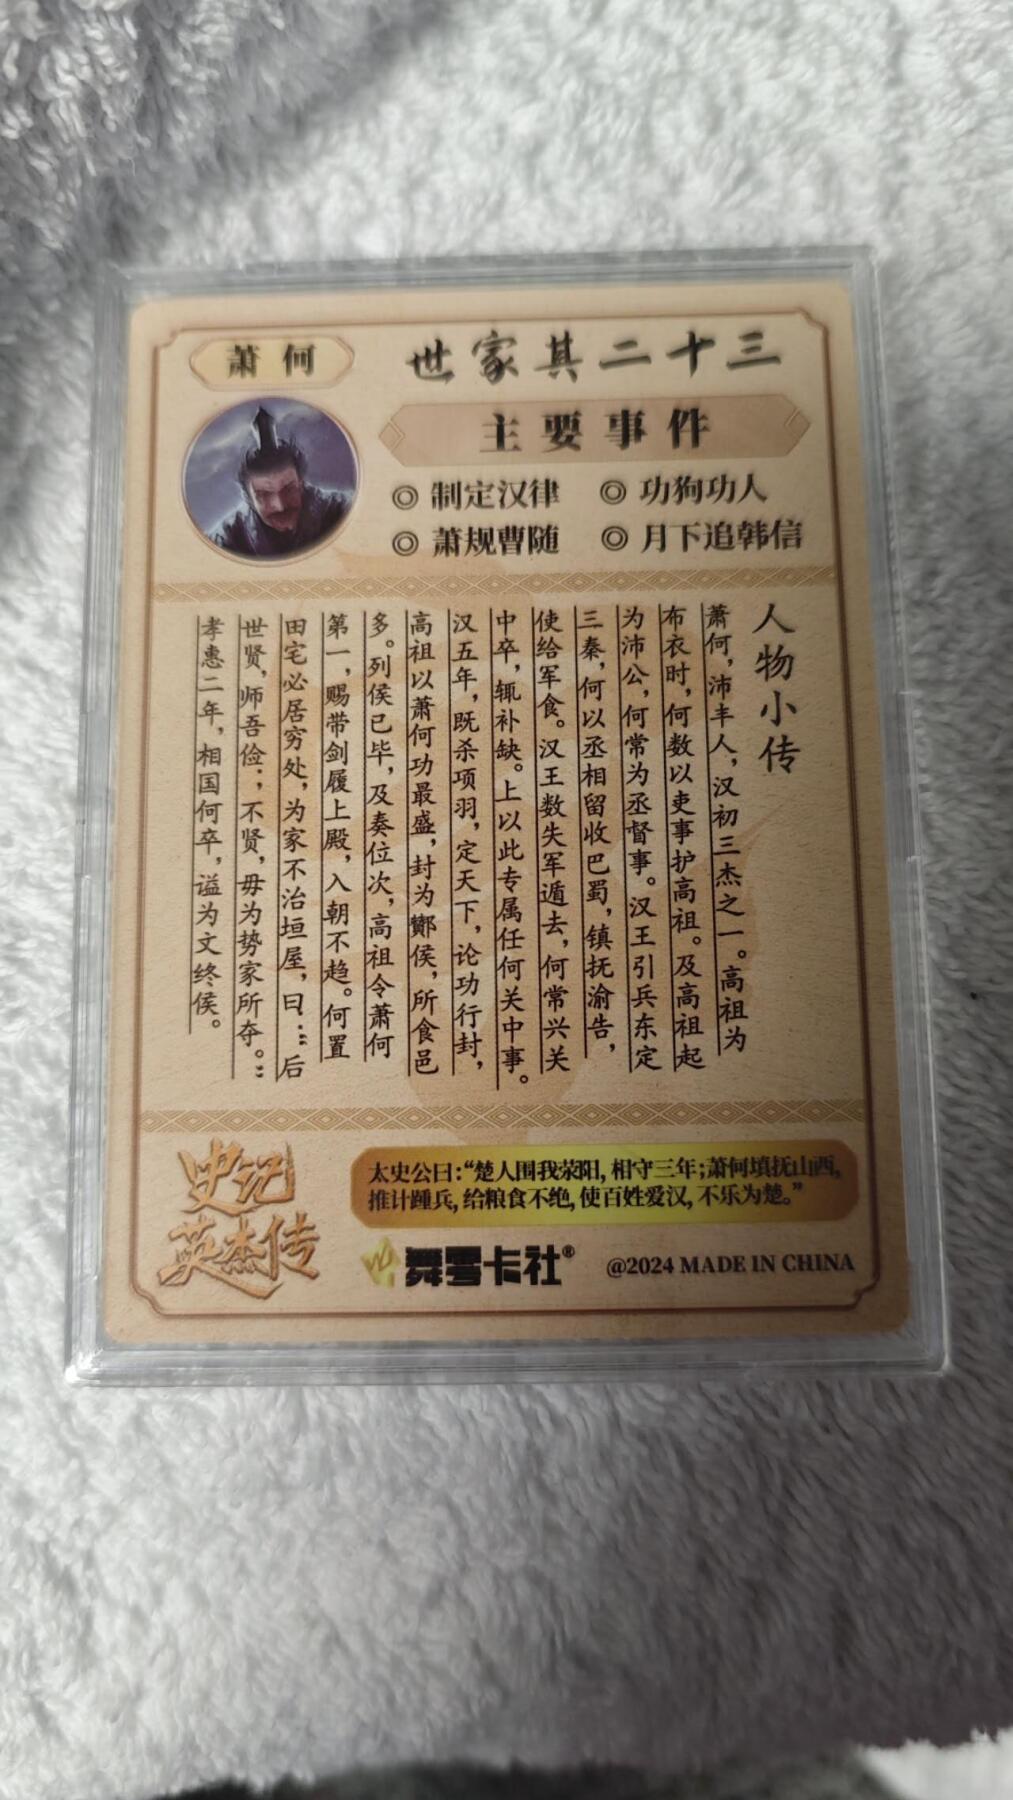 萧何
世家其二十三
主要事件
◎ 制定汉律
◎ 功狗功人
◎ 萧规曹随
◎ 月下追韩信
人物小传
萧何，沛丰人，汉初三杰之一。高祖为
布衣时，何数以吏事护高祖。及高祖起
为沛公，何常为丞督事。汉王引兵东定
三秦，何以丞相留收巴蜀，镇抚渝告，
使给军食。汉王数失军遁去，何常兴关
中卒，辄补缺。上以此专属任何关中事。
汉五年，既杀项羽，定天下，论功行封，
高祖以萧何功最盛，封为酇侯，所食邑
多。列侯已毕，及奏位次，高祖令萧何
第一，赐带剑履上殿，入朝不趋。何置
田宅必居穷处，为家不治垣屋，曰：“后
世贤，师吾俭；不贤，毋为势家所夺。”
孝惠二年，相国何卒，谥为文终侯。
史记
英杰传
太史公曰：“楚人围我荥阳，相守三年；萧何填抚山西，
推计踵兵，给粮食不绝，使百姓爱汉，不乐为楚。”
舞雩卡社®
@2024 MADE IN CHINA